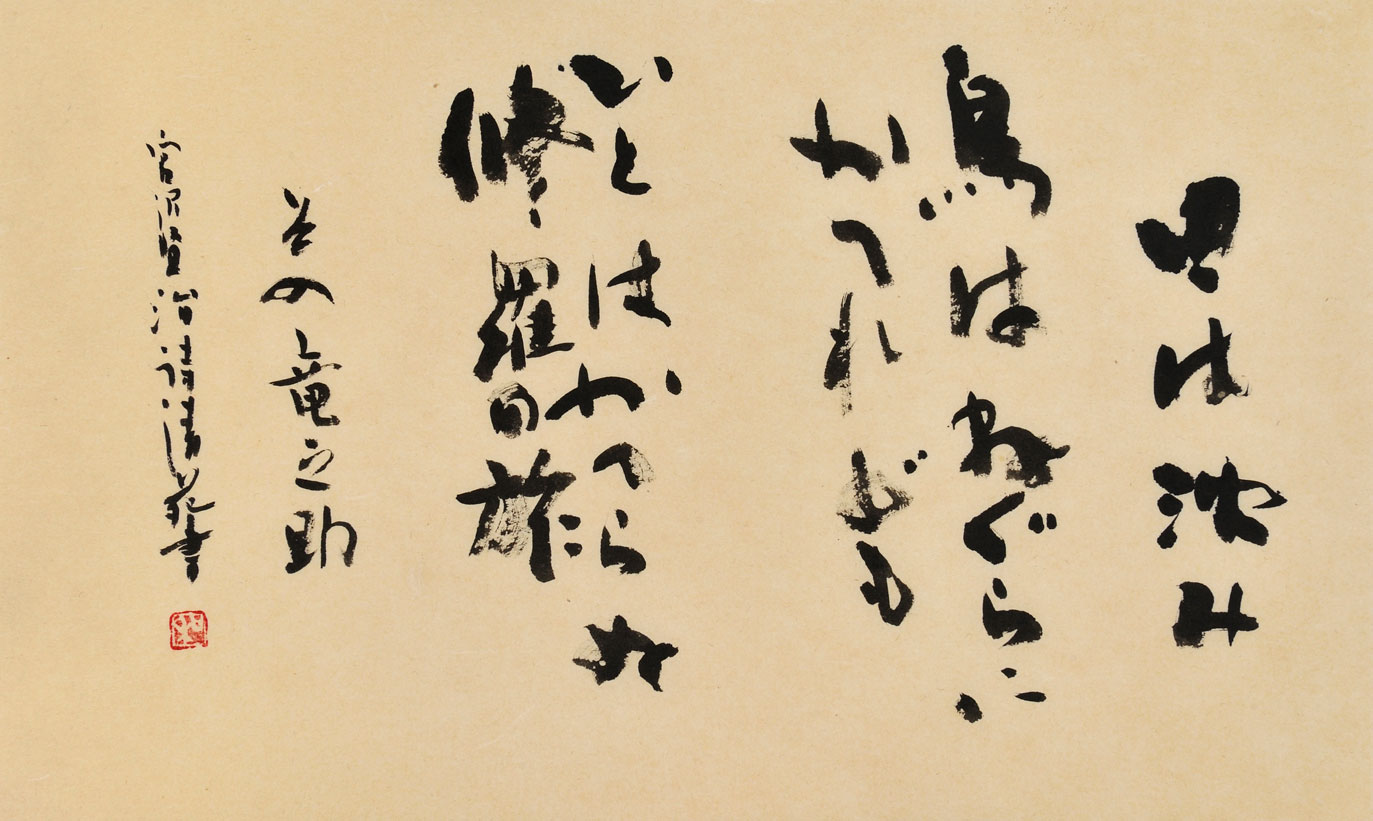 日は沈み
鳥はねぐらに
かへれども
ひとはかへらぬ
修羅の旅
その竜之助
宮沢賢治詩清苑書